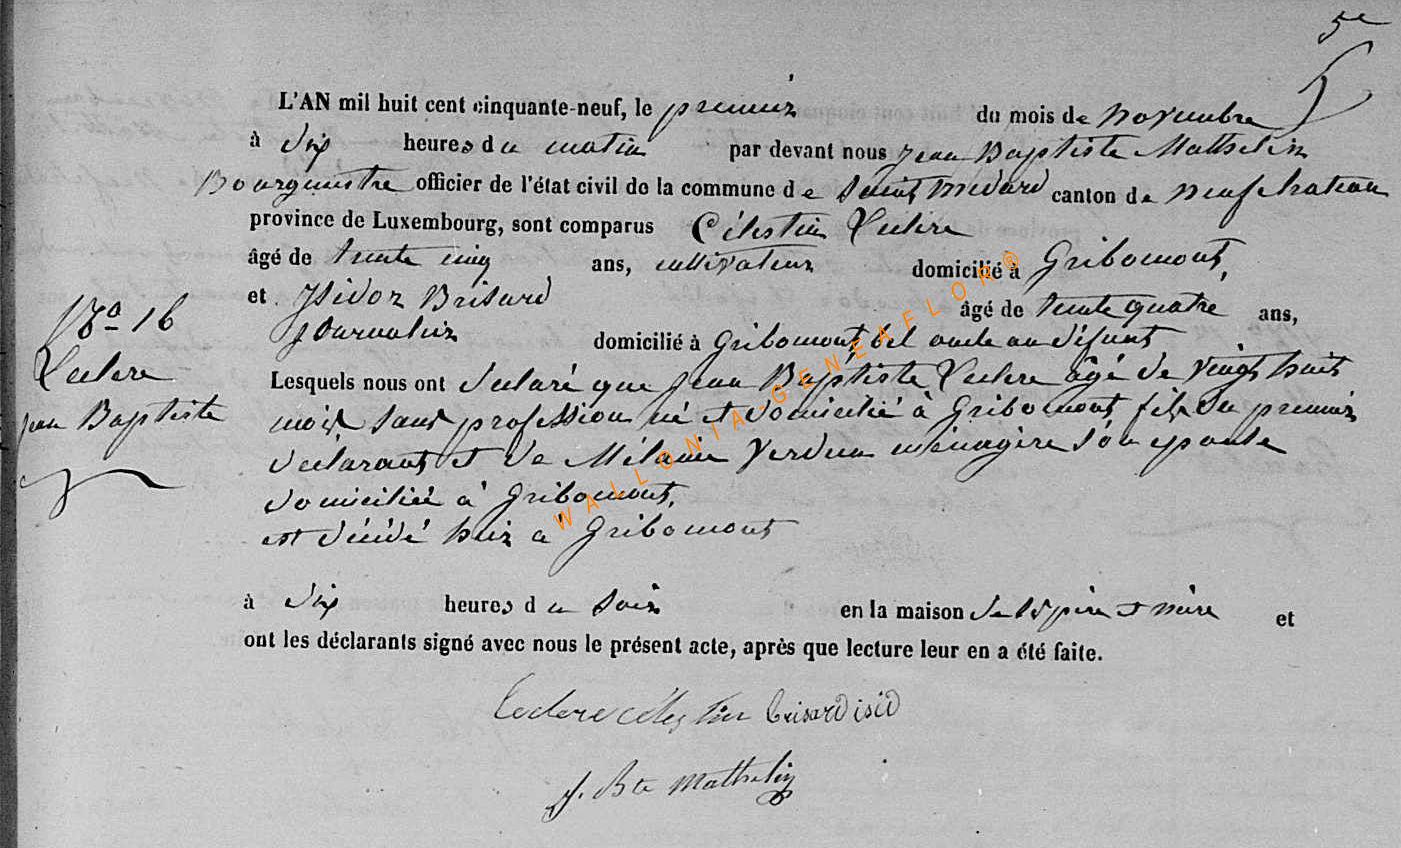 5e
5
L'AN mil huit cent cinquante-neuf, le premier du mois de novembre
à dix heures du matin par devant nous Jean Baptiste Mathelin
Bourgmestre officier de l'état civil de la commune de Saint Medard canton de neufchateau
province de Luxembourg, sont comparus Célestin Leclere
âgé de trente cinq ans, cultivateur domicilié à Gribomont,
et Isidor Brisard âgé de trente quatre ans,
journalier domicilié à Gribomont, bel oncle au défunt
Lesquels nous ont déclaré que Jean Baptiste Leclere âgé de vingt huit
mois sans profession né et domicilié à Gribomont fils du premier
déclarant et de Mélanie Verdun ménagère son épouse
domiciliée à Gribomont,
est décédé hier à Gribomont
à dix heures du soir en la maison de ses père et mère et
ont les déclarants signé avec nous le présent acte, après que lecture leur en a été faite.
No 16
Leclere
Jean Baptiste
Leclere célestin brisard isid
J. Bte Mathelin
WALLONIA-GENEAFLOR®